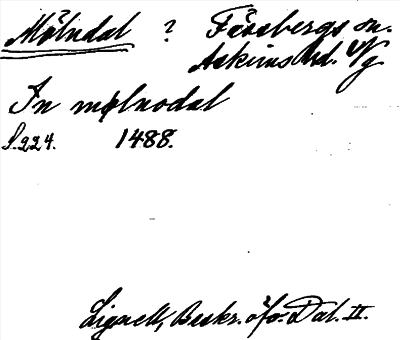 Mölndal ? Fässbergs sn.
Askims hd. Vg
In mølnodal
S. 224. 1488.
Lignell, Beskr. ö/o. Dal. II.